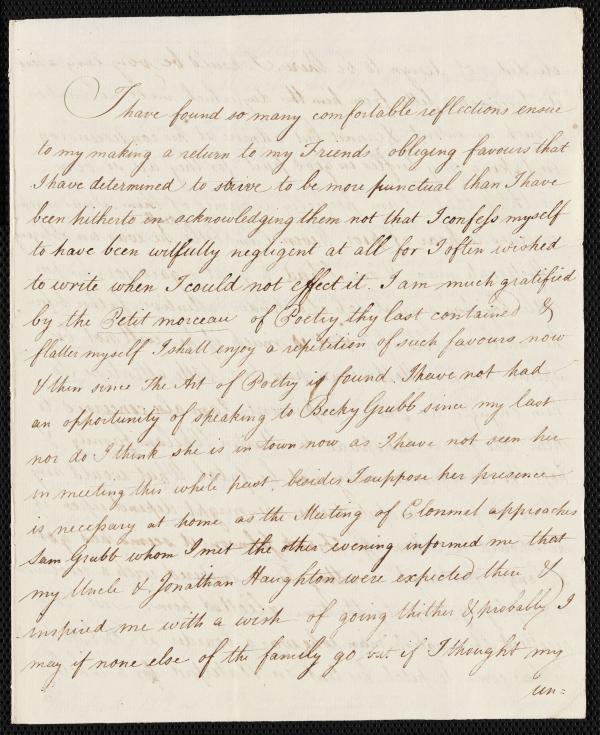 I have found so many comfortable reflections ensue
to my making a return to my Friends obliging favours that
I have determined to strive to be more punctual than I have
been hitherto in acknowledging them not that I confess myself
to have been wilfully negligent at all for I often wished
to write when I could not effect it. I am much gratified
by the Petit morceau of Poetry thy last contained &
flatter myself I shall enjoy a repetition of such favours now
& then since the Art of Poetry is found. I have not had
an opportunity of speaking to Becky Grubb since my last
nor do I think she is in town now as I have not seen her
in meeting this while past, besides I suppose her presence
is necessary at home as the Meeting of Clonmel approaches
Sam Grubb whom I met the other evening informed me that
my Uncle & Jonathan Haughton were expected there &
inspired me with a wish of going thither & probably I
may if none else of the family go but if I thought my
un=